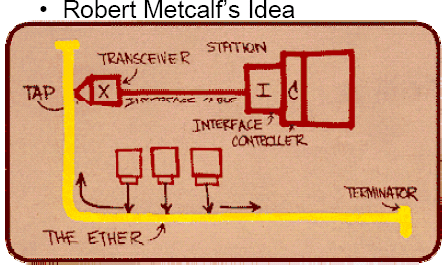 • Robert Metcalf's Idea
STATION
TRANSCEIVER
TAP
X
I
C
INTERFACE CABLE
INTERFACE
CONTROLLER
TERMINATOR
THE ETHER